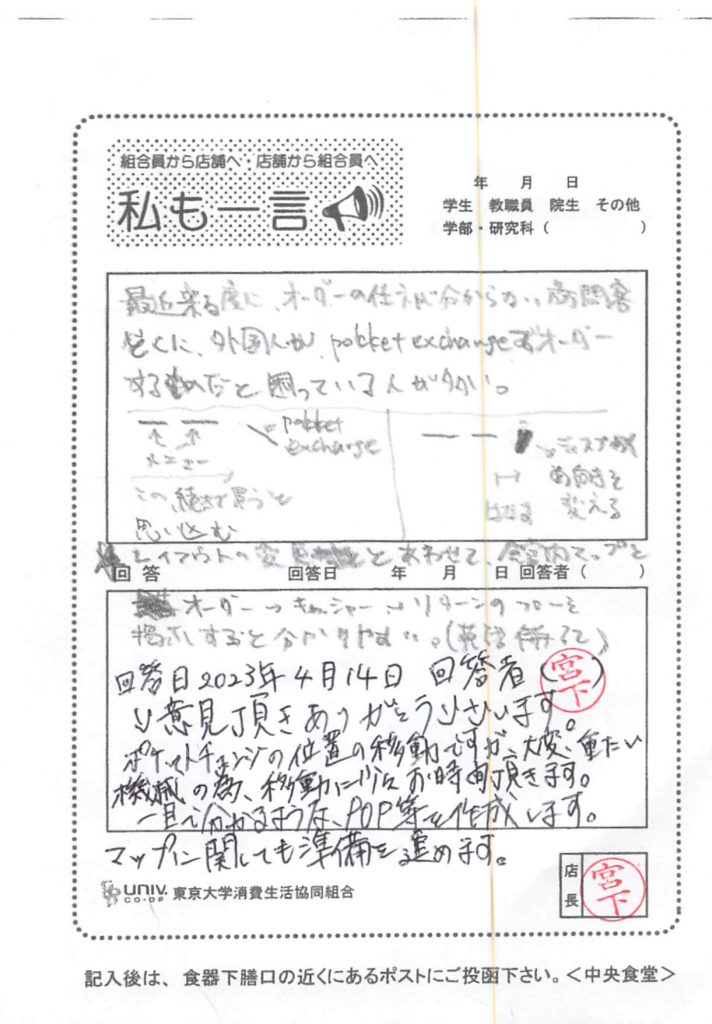 組合員から店舗へ・店舗から組合員へ
私も一言
年 月 日
学生 教職員 院生 その他
学部・研究科( )
最近来る度に、オーダーの仕方が分からない訪問客
とくに、外国人が、pokket exchangeでオーダー
するのだと困っている人が多い。
pokket
exchange
メニュー
この続きで買うと
思い込む
ディスプレイ
の向きを
変える
はなす
レイアウトの変更とあわせて、食堂内マップと
回答 回答日 年 月 日 回答者( )
オーダー→キャッシャー→リターンのフローを
掲示すると分かりやすい。(英語併記で)
回答日2023年4月14日 回答者(宮下)
ご意見頂きありがとうございます。
ポケットチェンジの位置の移動ですが、大変、重たい
機械の為、移動には お時間頂きます。
一目で分かるような、POP等を作成します。
マップに関しても準備を進めます。
UNIV. CO-OP 東京大学消費生活協同組合
店長 宮下
記入後は、食器下膳口の近くにあるポストにご投函下さい。<中央食堂>